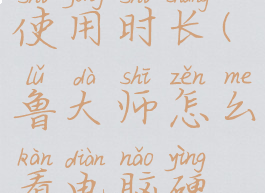 使用时长(
lǔ dà shī zěn me
鲁大师怎么
kàn diàn nǎo yìng
看电脑硬